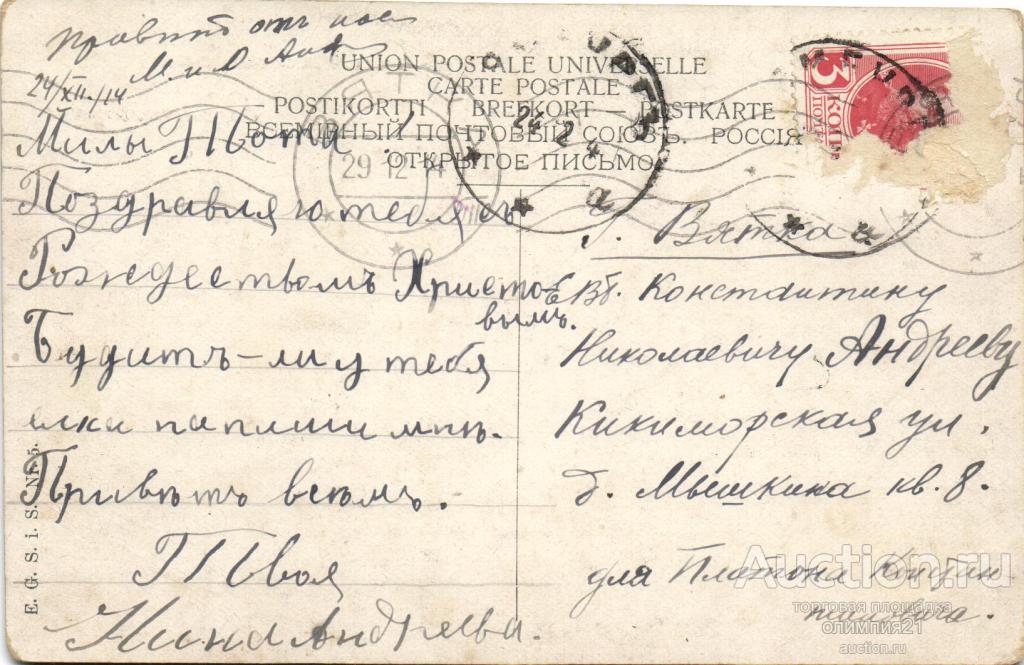 Привѣтъ отъ нас
М. и
24/XII./14
UNION POSTALE UNIVERSELLE
CARTE POSTALE
POSTIKORTTI BREFKORT POSTKARTE
ВСЕМІРНЫЙ ПОЧТОВЫЙ СОЮЗЪ. РОССІЯ
ОТКРЫТОЕ ПИСЬМО
29 12 14
3
КОП
Милы Тотя!
Поздравляю тебя съ
Рождествомъ Христо-
вымъ.
Будитъ-ли у тебя
елка папиши мнѣ.
Привѣтъ всѣмъ.
Твоя
Нина Андреева.
г. Вятка
ЕВБ. Константину
Николаевичу Андрееву
Кикиморская ул.
д. Мышкина кв. 8.
для Платона Констан-
тиновича.
E. G. S. i. S. Nr. 5.
Auction.ru
торговая площадка
олимпия21
auction.ru